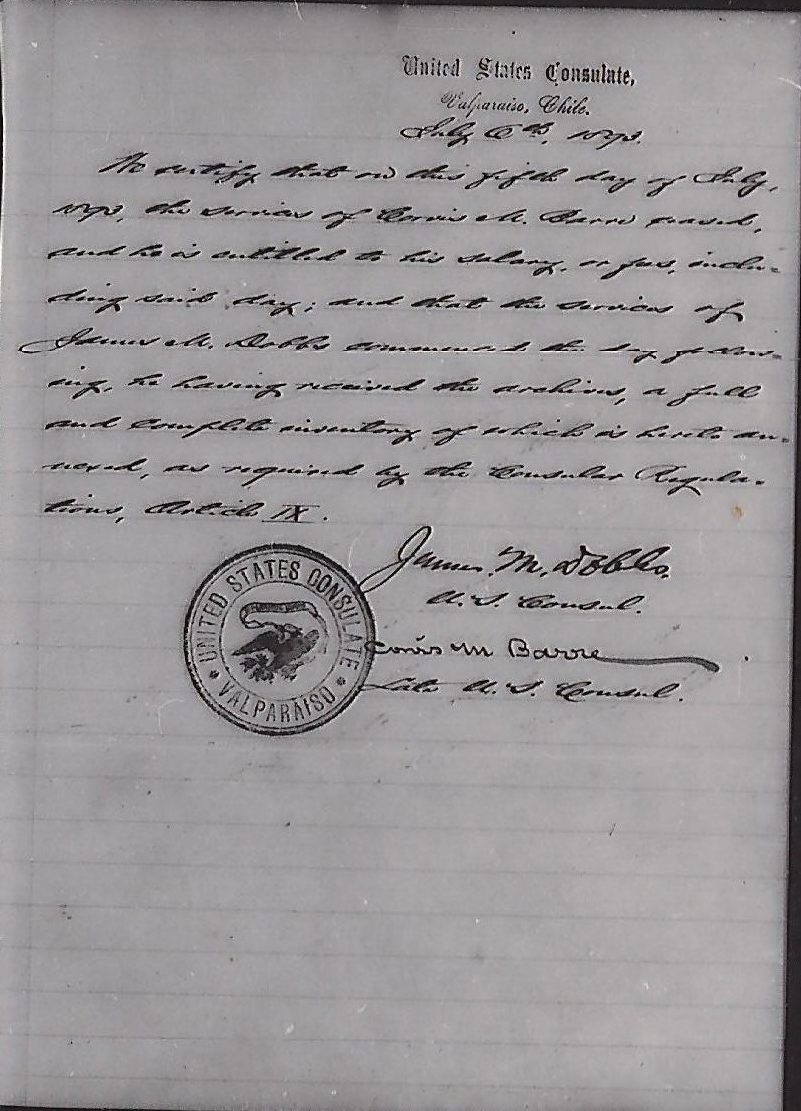 United States Consulate,
Valparaiso, Chile.
July 6th, 1893.
We certify that on this fifth day of July,
1893, the services of Corvis M. Barre ceased,
and he is entitled to his salary, or fees, inclu-
ding said day; and that the services of
James M. Dobbs commenced the day follow-
ing, he having received the archives, a full
and complete inventory of which is hereto an-
nexed, as required by the Consular Regula-
tions, Article IX.
James M. Dobbs.
U. S. Consul.
Corvis M Barre
Late U. S. Consul.
UNITED STATES CONSULATE
* VALPARAISO *